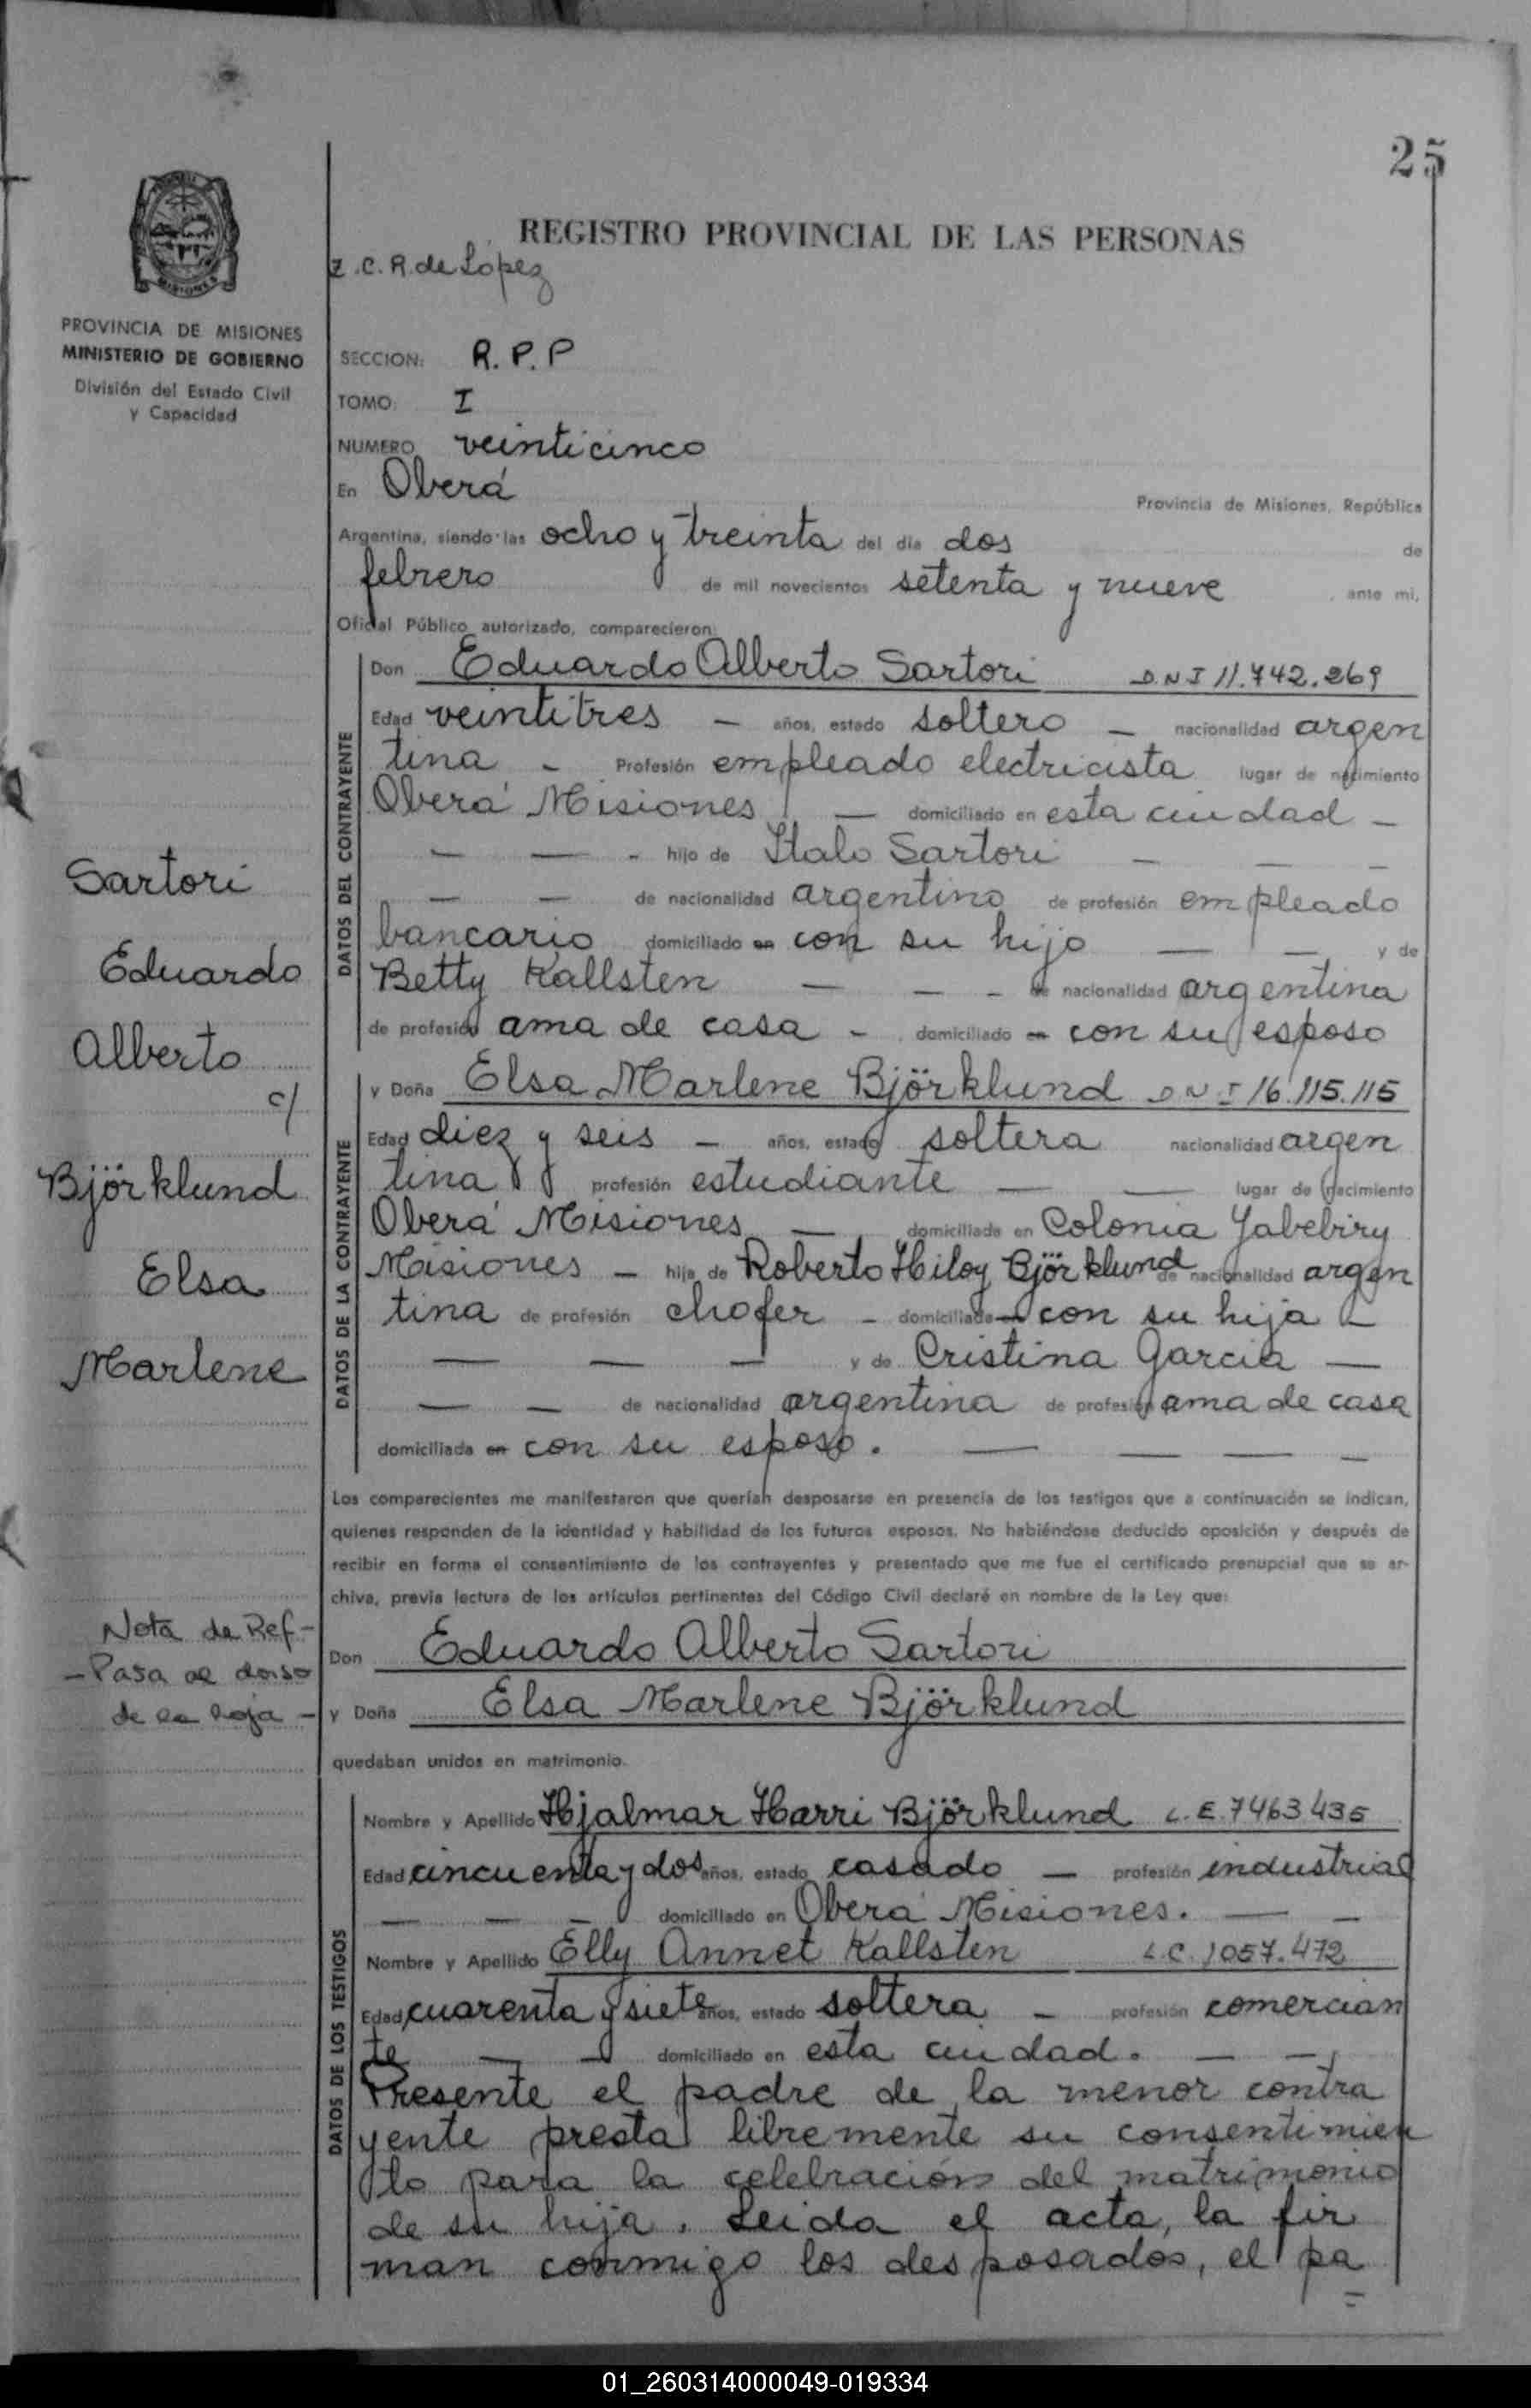 25
REGISTRO PROVINCIAL DE LAS PERSONAS
Z.C.R. de López
PROVINCIA DE MISIONES
MINISTERIO DE GOBIERNO
División del Estado Civil
y Capacidad
SECCION: R.P.P
TOMO: I
NUMERO veinticinco
En Oberá Provincia de Misiones, República
Argentina, siendo las ocho y treinta del día dos de
febrero de mil novecientos setenta y nueve, ante mi,
Oficial Público autorizado, comparecieron:
DATOS DEL CONTRAYENTE
Don Eduardo Alberto Sartori D.N.I 11.742.269
Edad veintitres - años, estado soltero - nacionalidad argen
tina - Profesión empleado electricista lugar de nacimiento
Oberá Misiones - domiciliado en esta ciudad -
- - - hijo de Italo Sartori - - -
- - de nacionalidad argentino de profesión empleado
bancario domiciliado en con su hijo - - y de
Betty Kallsten - - - de nacionalidad argentina
de profesión ama de casa - domiciliado en con su esposo
DATOS DE LA CONTRAYENTE
y Doña Elsa Marlene Björklund D N I 16.115.115
Edad diez y seis - años, estado soltera nacionalidad argen
tina profesión estudiante - - lugar de nacimiento
Oberá Misiones - domiciliada en Colonia Yabebiry
Misiones - hija de Roberto Hiloy Björklund de nacionalidad argen
tina de profesión chofer - domiciliado en con su hija -
- - - y de Cristina Garcia -
- - de nacionalidad argentina de profesión ama de casa
domiciliada en con su esposo. - - - -
Sartori
Eduardo
Alberto
c/
Björklund
Elsa
Marlene
Los comparecientes me manifestaron que querían desposarse en presencia de los testigos que a continuación se indican,
quienes responden de la identidad y habilidad de los futuros esposos. No habiéndose deducido oposición y después de
recibir en forma el consentimiento de los contrayentes y presentado que me fue el certificado prenupcial que se ar-
chiva, previa lectura de los artículos pertinentes del Código Civil declaré en nombre de la Ley que:
Don Eduardo Alberto Sartori
y Doña Elsa Marlene Björklund
quedaban unidos en matrimonio.
Nota de Ref-
- Pasa al dorso
de la hoja -
DATOS DE LOS TESTIGOS
Nombre y Apellido Hjalmar Harri Björklund L.E. 7463435
Edad cincuenta y dos años, estado casado - profesión industrial
- - - domiciliado en Oberá Misiones. - -
Nombre y Apellido Elly Annet Kallsten L.C. 1057.472
Edad cuarenta y siete años, estado soltera - profesión comercian
te - - domiciliado en esta ciudad. - -
Presente el padre de la menor contra
yente presta libremente su consentimien
to para la celebración del matrimonio
de su hija. Leida el acta, la fir
man conmigo los desposados, el pa
=
01_260314000049-019334